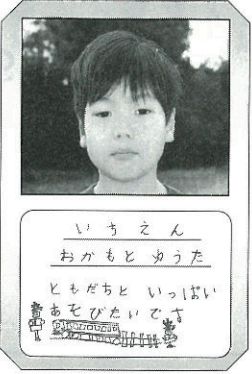 いちえん
おかもと ゆうた
ともだちと いっぱい
あそびたいです